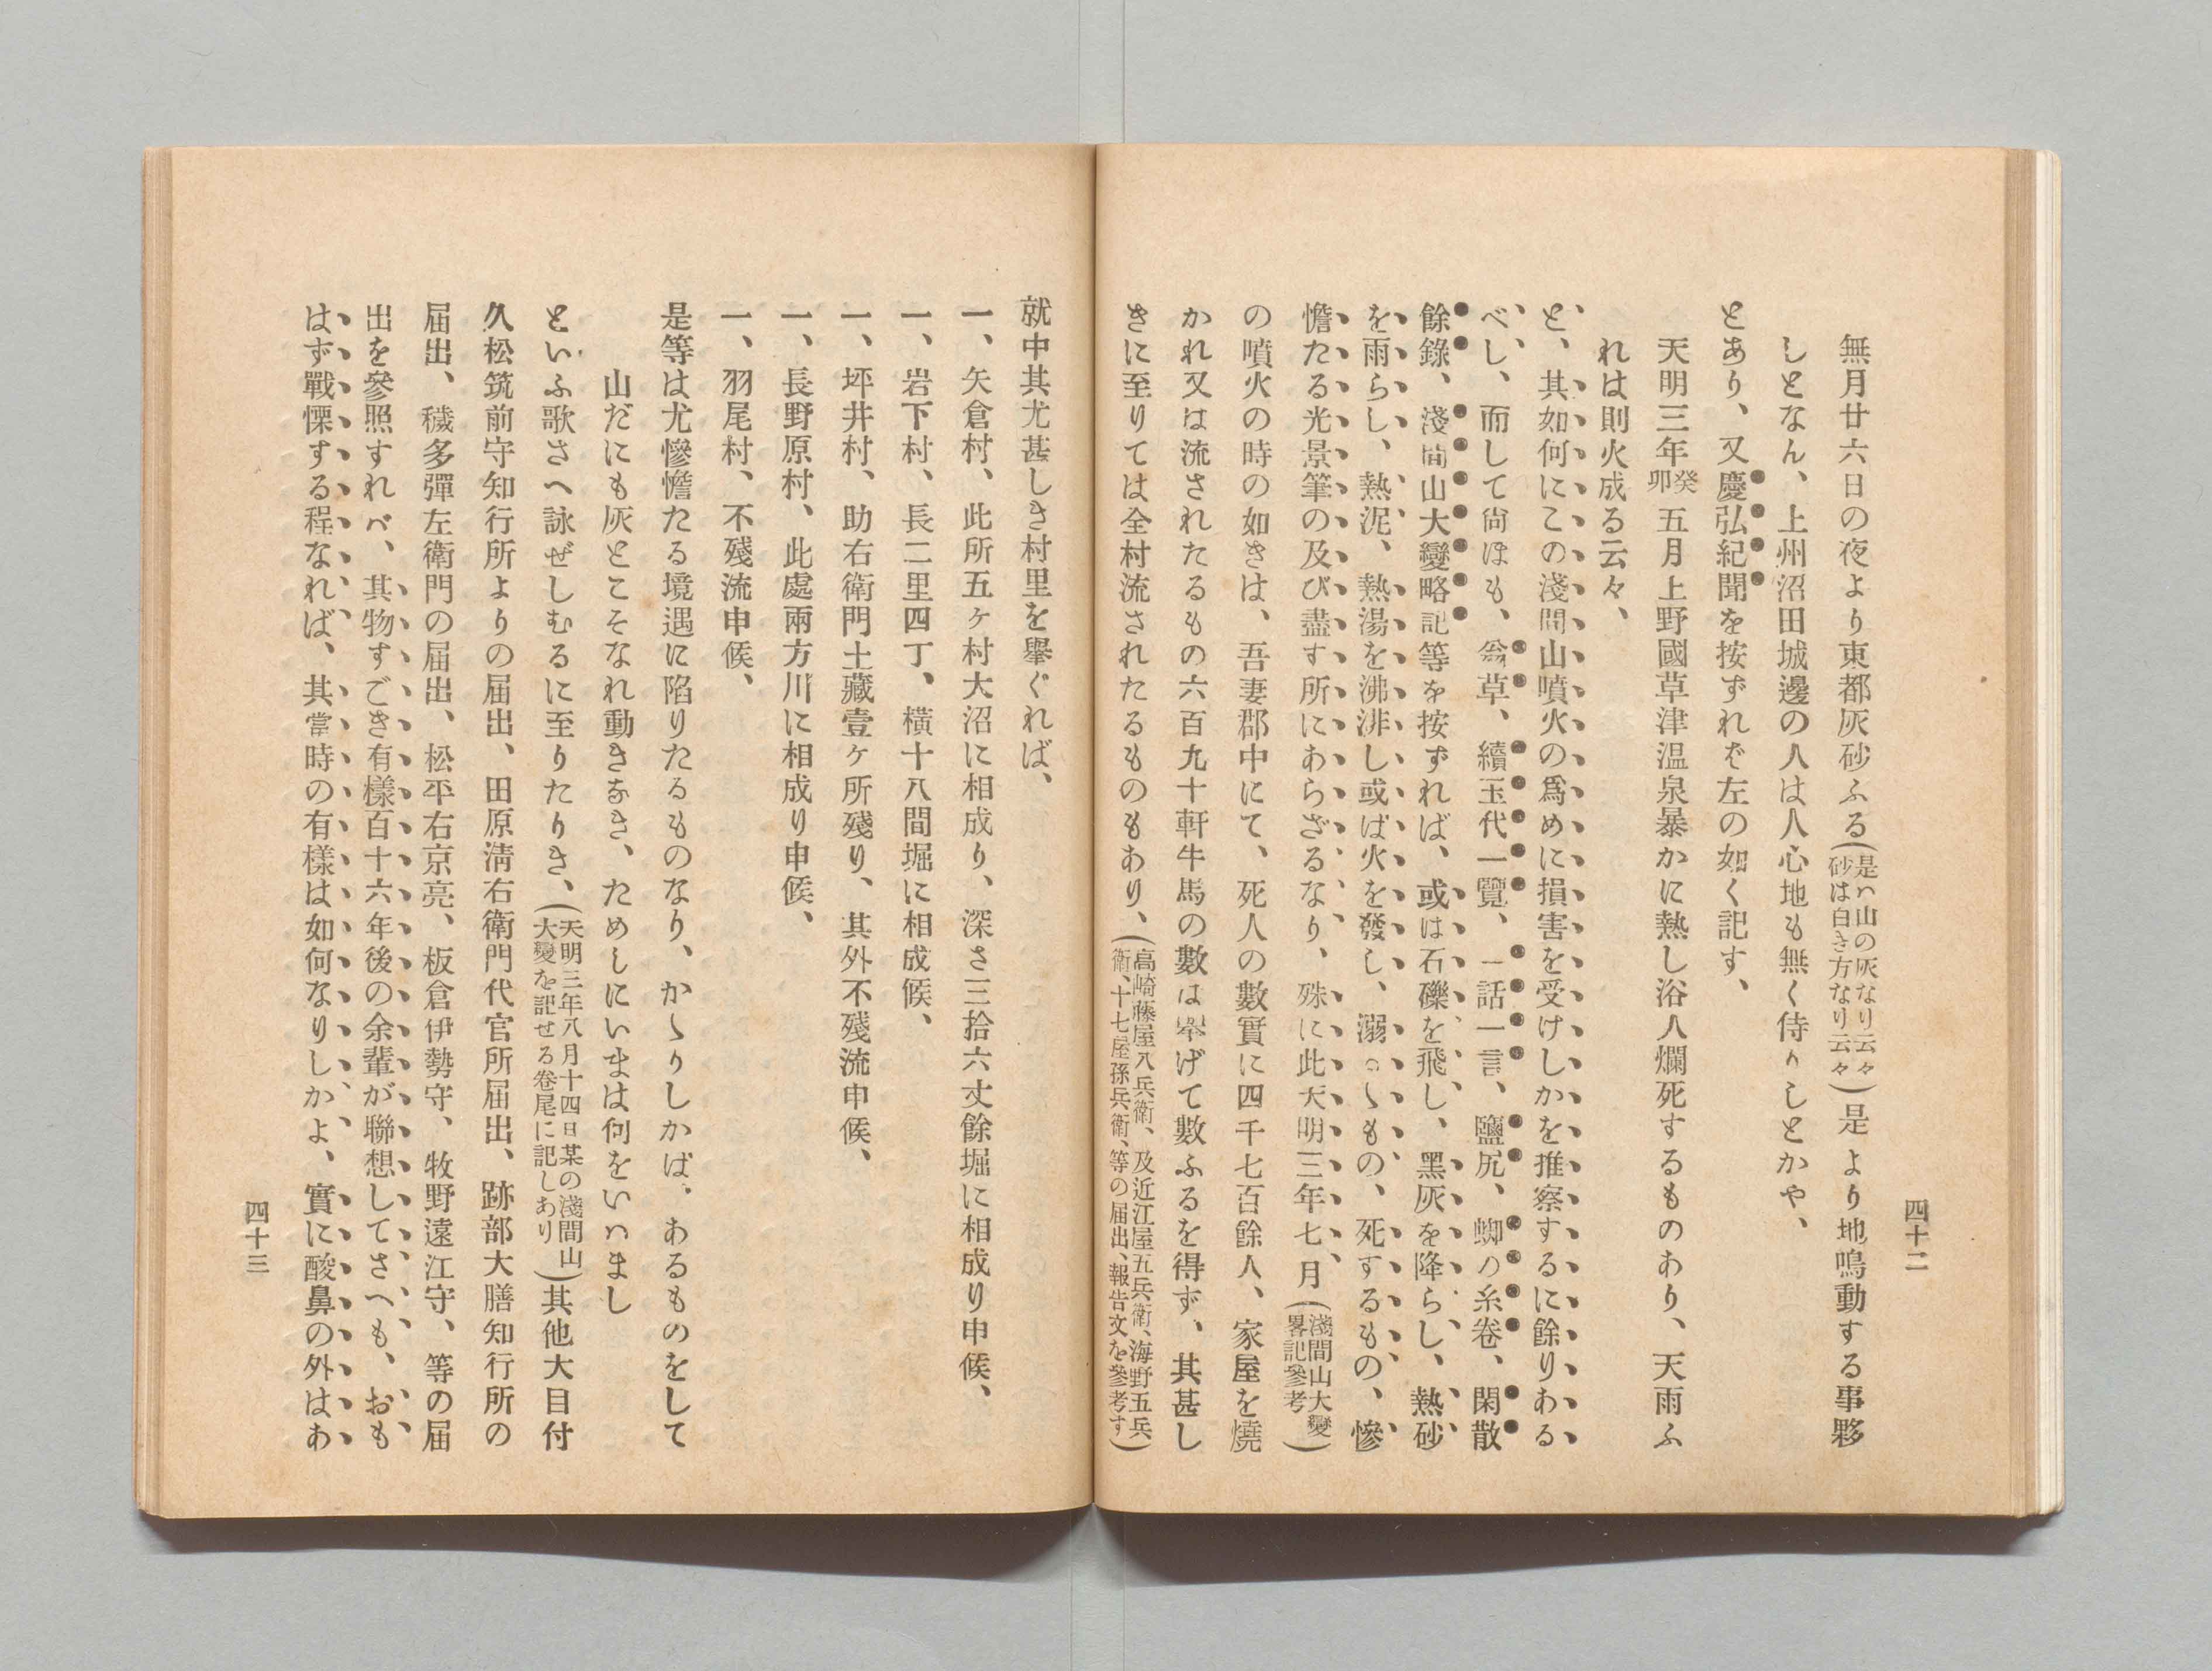 四十二
無月廿六日の夜より東都灰砂ふる(是ハ山の灰なり云々砂は白き方なり云々)是より地鳴動する事夥
しとなん、上州沼田城邊の人は人心地も無く侍りしとかや、
とあり、又慶弘紀聞を按ずれば左の如く記す、
天明三年癸卯五月上野國草津温泉暴かに熱し浴人爛死するものあり、天雨ふ
れは則火成る云々、
と、其如何にこの淺間山噴火の爲めに損害を受けしかを推察するに餘りある
べし、而して尙ほも、翁草、續王代一覽、一話一言、鹽尻、蜘の糸卷、閑散
餘錄、淺間山大變略記等を按ずれば、或は石礫を飛し、黑灰を降らし、熱砂
を雨らし、熱泥、熱湯を沸湃し或ば火を發し、溺るゝもの、死するもの、慘
憺たる光景筆の及び盡す所にあらざるなり、殊に此天明三年七月(淺間山大變畧記參考)
の噴火の時の如きは、吾妻郡中にて、死人の數實に四千七百餘人、家屋を燒
かれ又は流されたるもの六百九十軒牛馬の數は擧げて數ふるを得ず、其甚し
きに至りては全村流されたるものもあり、(高崎藤屋八兵衛、及近江屋五兵衛、海野五兵衛、十七屋孫兵衛、等の届出、報告文を參考す)
就中其尤甚しき村里を擧ぐれば、
一、矢倉村、此所五ヶ村大沼に相成り、深さ三拾六丈餘堀に相成り申候、
一、岩下村、長二里四丁、橫十八間堀に相成候、
一、坪井村、助右衛門土藏壹ヶ所殘り、其外不殘流申候、
一、長野原村、此處兩方川に相成り申候、
一、羽尾村、不殘流申候、
是等は尤慘憺たる境遇に陷りたるものなり、かゝりしかば、あるものをして
山だにも灰とこそなれ動きなき、ためしにいまは何をいハまし
といふ歌さへ詠ぜしむるに至りたりき、(天明三年八月十四日某の淺間山大變を記せる卷尾に記しあり)其他大目付
久松筑前守知行所よりの届出、田原淸右衛門代官所届出、跡部大膳知行所の
届出、穢多彈左衛門の届出、松平右京亮、板倉伊勢守、牧野遠江守、等の届
出を參照すれバ、其物すごき有樣百十六年後の余輩が聯想してさへも、おも
はず戰慄する程なれば、其當時の有樣は如何なりしかよ、實に酸鼻の外はあ
四十三